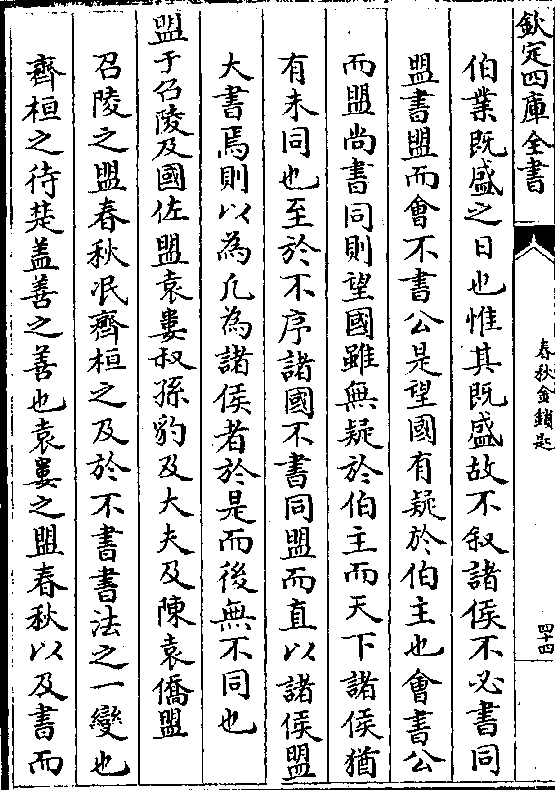 欽定四庫全書
春秋金鎖匙
四十四
伯業既盛之日也惟其既盛故不叙諸侯不必書同
盟書盟而會不書公是望國有疑於伯主也會書公
而盟尚書同則望國雖無疑於伯主而天下諸侯猶
有未同也至於不序諸國不書同盟而直以諸侯盟
大書焉則以為凡為諸侯者於是而後無不同也
盟于召陵及國佐盟袁婁叔孫豹及大夫及陳袁僑盟
召陵之盟春秋泯齊桓之及於不書書法之一變也
齊桓之待楚盖善之善也袁婁之盟春秋以及書而